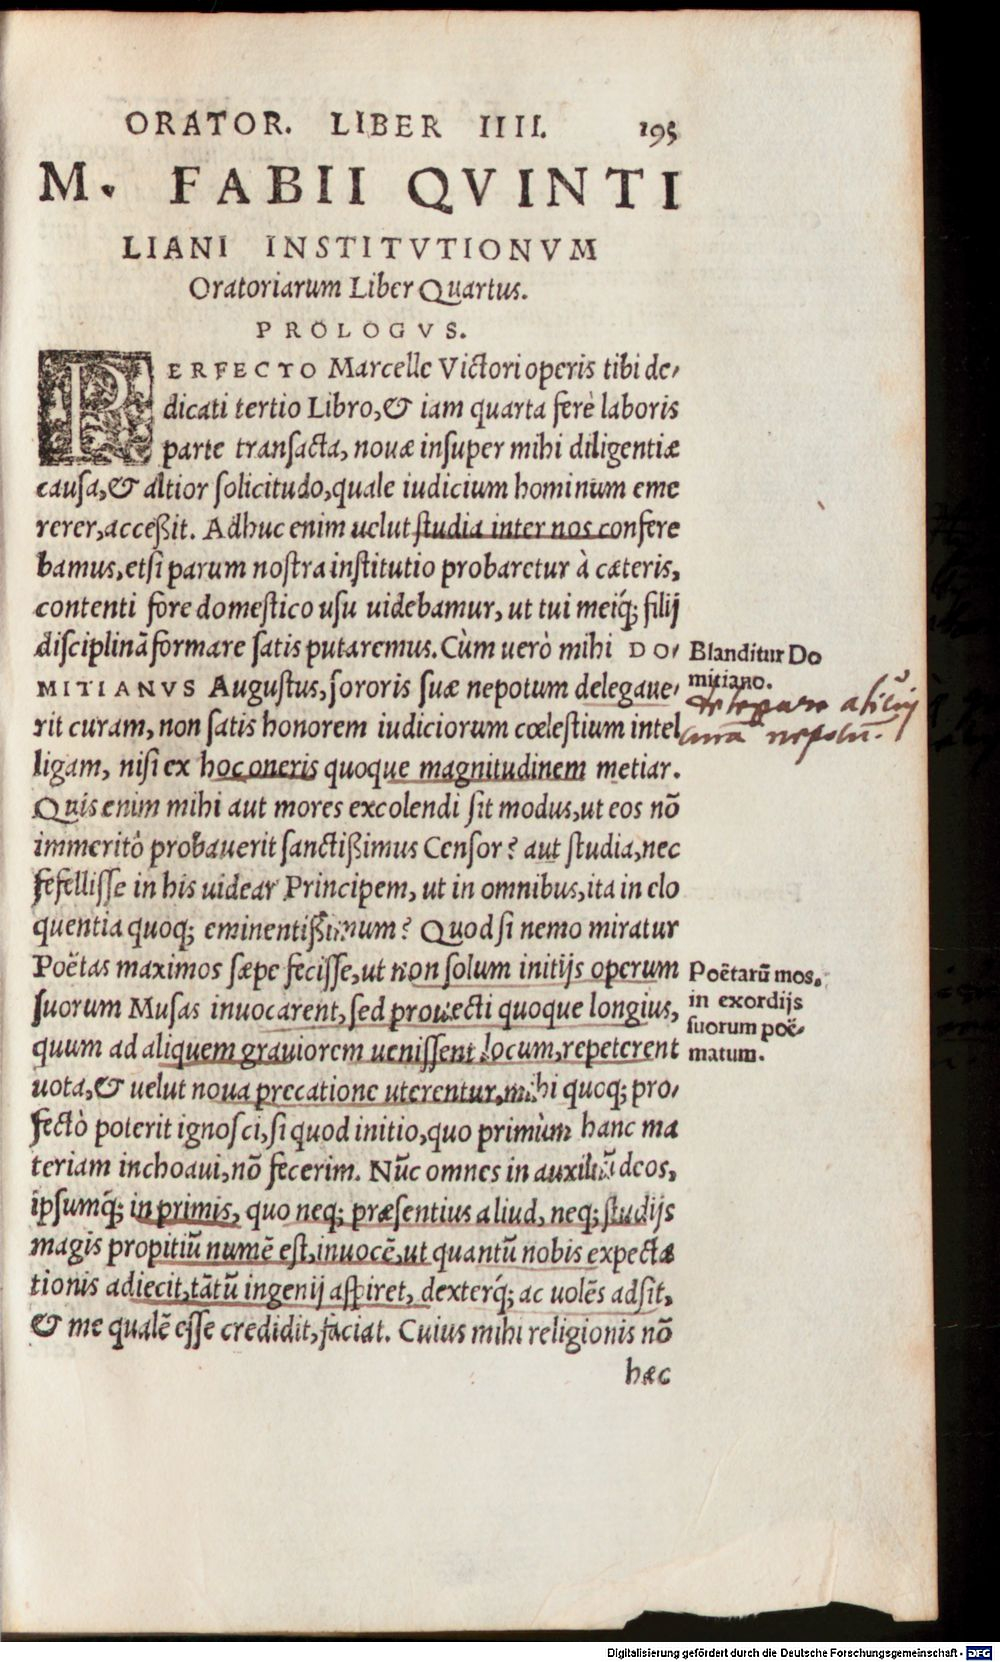 ORATOR. LIBER IIII. 195
M. FABII QVINTI
LIANI INSTITVTIONVM
Oratoriarum Liber Quartus.
PROLOGVS.
PERFECTO Marcelle Victori operis tibi de-
dicati tertio Libro, & iam quarta ferè laboris
parte transacta, nouæ insuper mihi diligentiæ
causa, & altior solicitudo, quale iudicium hominum eme
rerer, acceßit. Adhuc enim uelut studia inter nos confere
bamus, etsi parum nostra institutio probaretur à cæteris,
contenti fore domestico usu uidebamur, ut tui meiq́; filij
disciplinā formare satis putaremus. Cùm uerò mihi DO-
MITIANVS Augustus, sororis suæ nepotum delegaue-
rit curam, non satis honorem iudiciorum cœlestium intel
ligam, nisi ex hoc oneris quoque magnitudinem metiar.
Quis enim mihi aut mores excolendi sit modus, ut eos nō
immeritò probauerit sanctißimus Censor? aut studia, nec
fefellisse in his uidear Principem, ut in omnibus, ita in elo
quentia quoq; eminentißimum? Quod si nemo miratur
Poëtas maximos sæpe fecisse, ut non solum initijs operum
suorum Musas inuocarent, sed prouecti quoque longius,
quum ad aliquem grauiorem uenissent locum, repeterent
uota, & uelut noua precatione uterentur, mihi quoq; pro-
fectò poterit ignosci, si quod initio, quo primùm hanc ma
teriam inchoaui, nō fecerim. Nūc omnes in auxiliū deos,
ipsumq́; in primis, quo neq; præsentius aliud, neq; studijs
magis propitiū numē est, inuocē, ut quantū nobis expectæ
tionis adiecit, tātū ingenij aspiret, dexterq́; ac uolēs adsit,
& me qualē esse credidit, faciat. Cuius mihi religionis nō
hæc
Blanditur Do
mitiano.
delegare alicui
curā nepotū.
Poëtarū mos,
in exordijs
suorum poë-
matum.
Digitalisierung gefördert durch die Deutsche Forschungsgemeinschaft - DFG